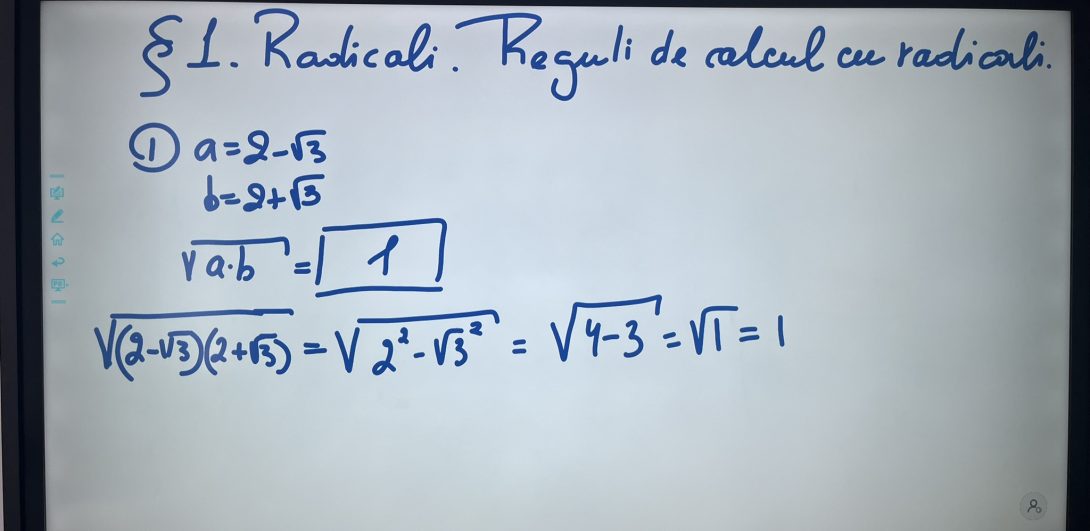 § 1. Radicali. Reguli de calcul cu radicali.
① a=2-√3
b=2+√3
√a·b = 1
√(2-√3)(2+√3) = √2²-√3² = √4-3 = √1 = 1